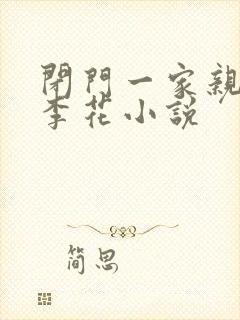 閉門一家親
李花小說
简思